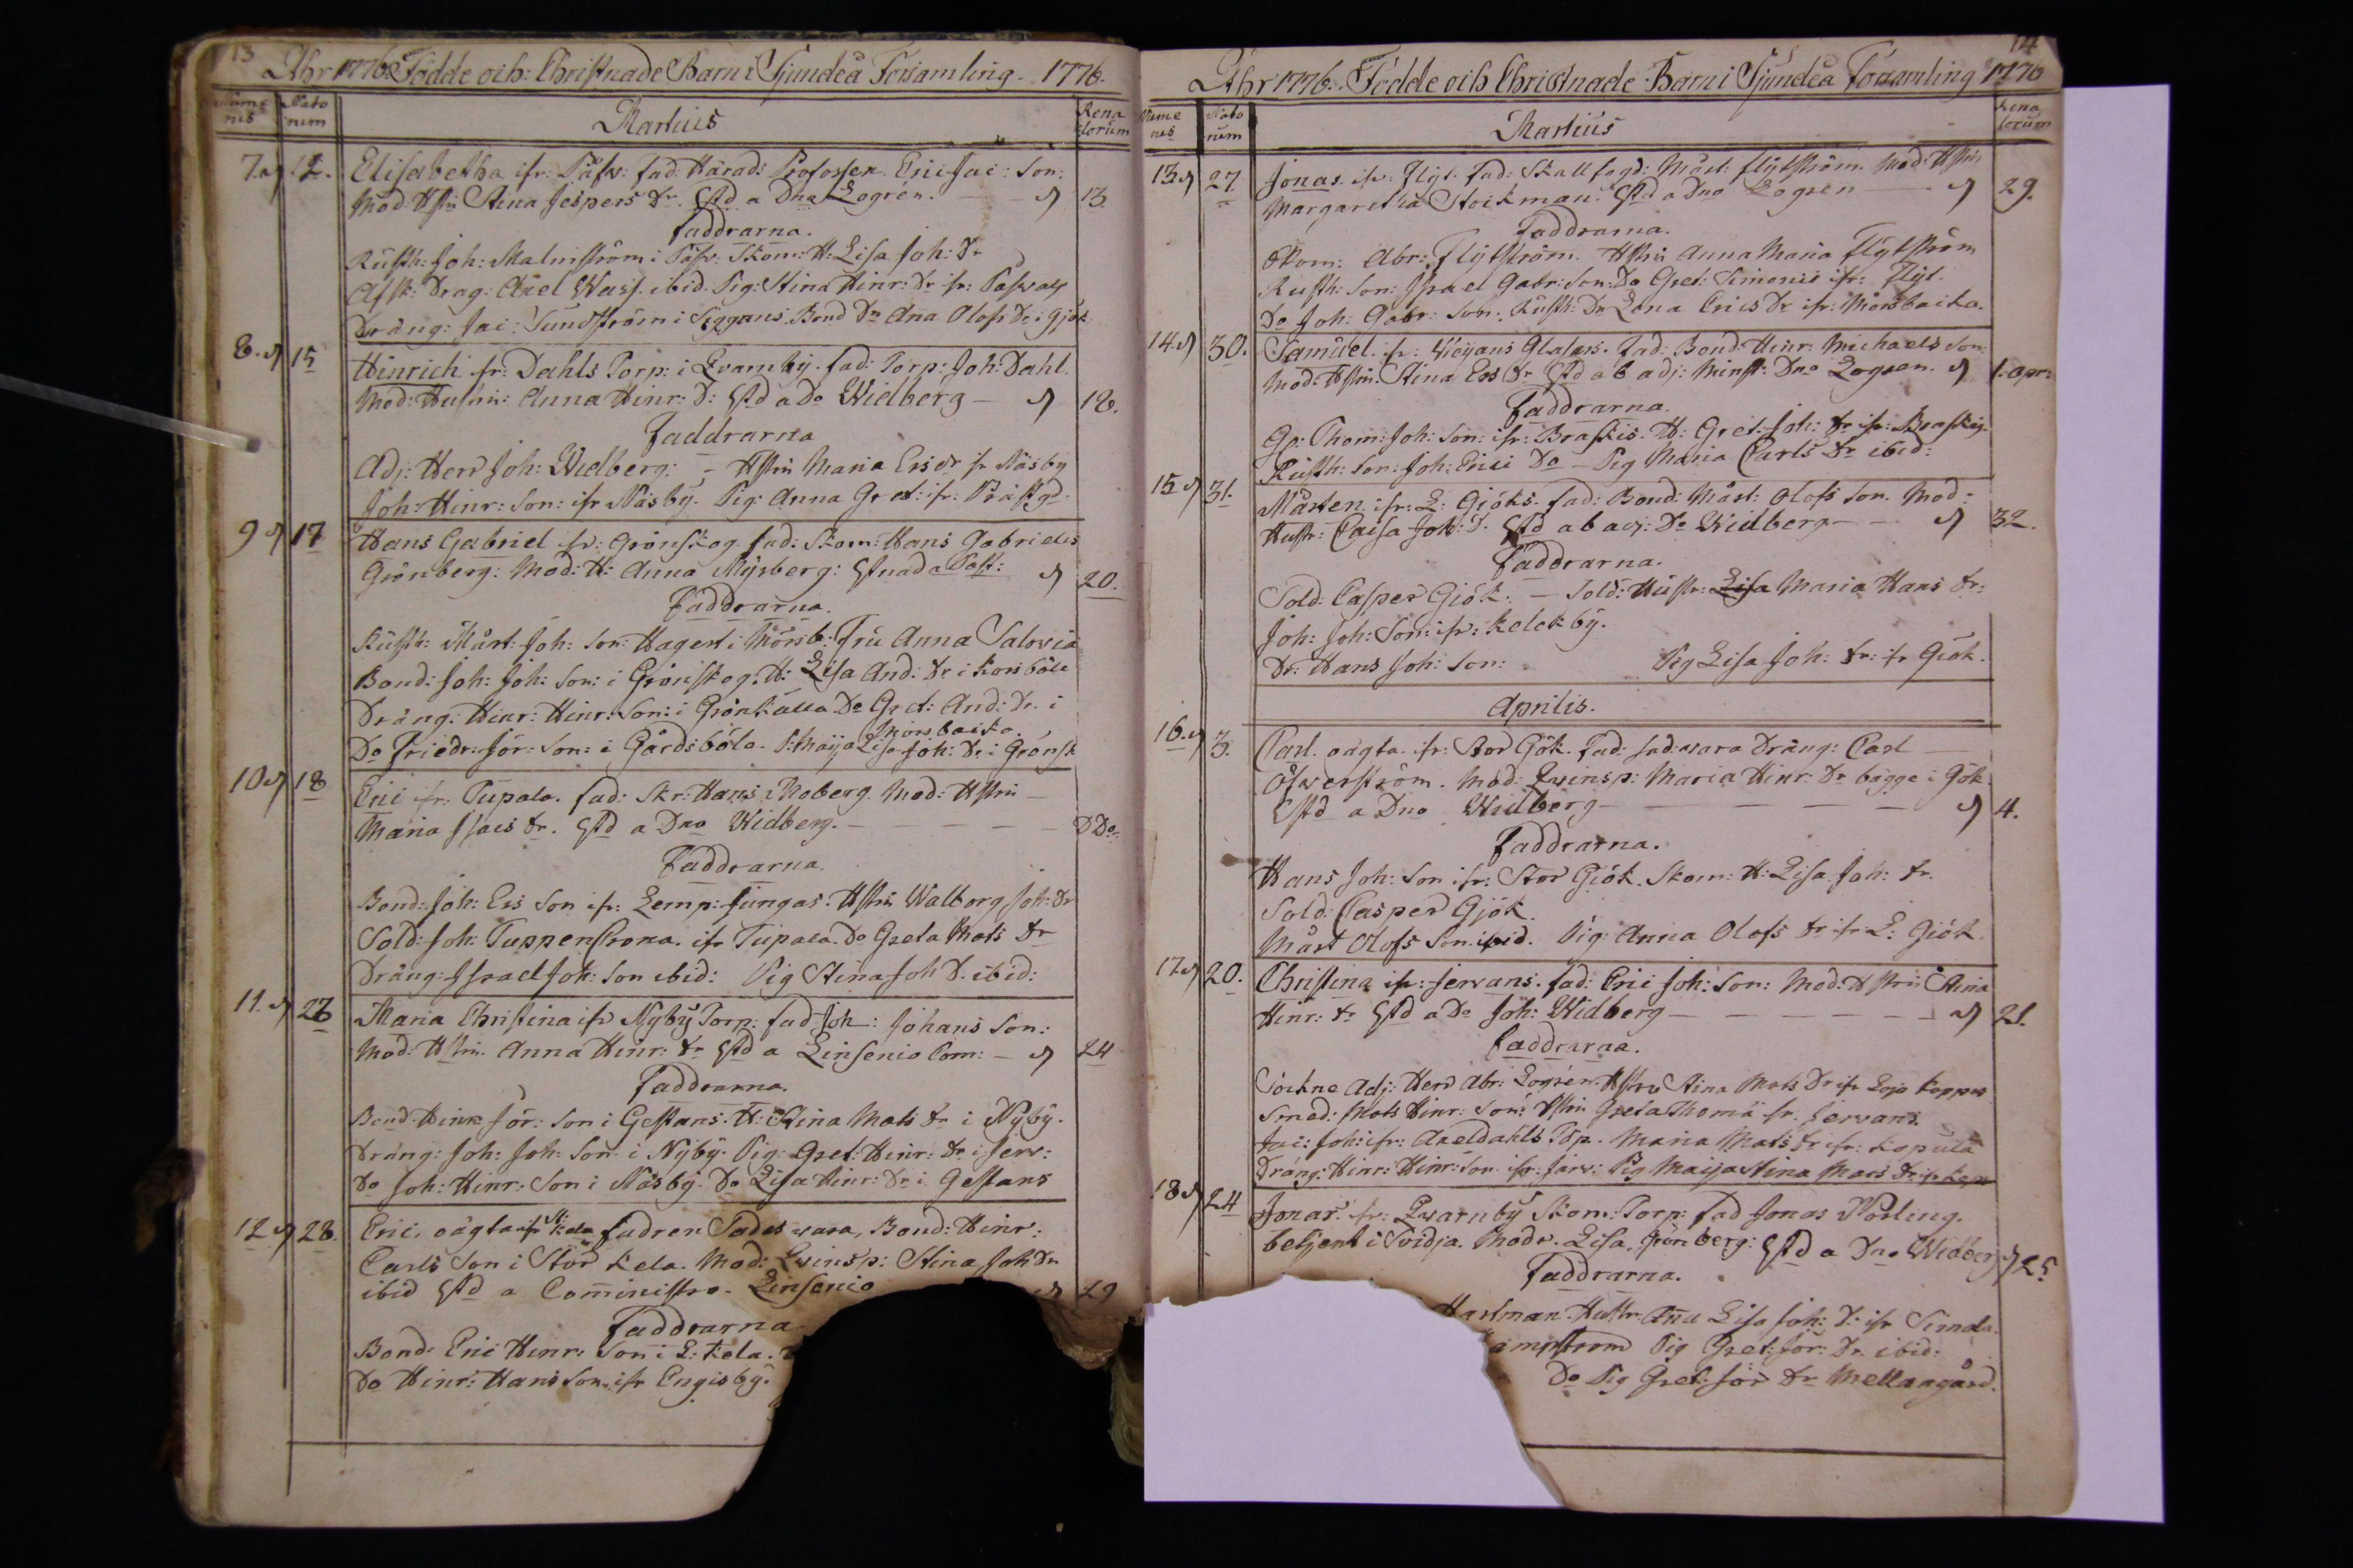 13
Åhr 1776. Födde och: Christnade Barn i Sjundeå Församling. 1776.
Nume nus Nato rum Martius Rena torum
7. 12. Elisabetha ifr: Påfv: fad: Härad: Profossen Eric Jac: Son:
Mod: Hstru Stina Jespers Dr. Chstd a Dno Logrén. 13
Faddrarna.
Rusth: Joh: Malmström i Påfv: Skom: H: Lisa Joh: Dr
Afsk: Drag: Axel Wass. ibid. Pig: Stina Hinr: Dr ifr:
Dräng: Jac: Sundström i Siggans. Bond Dr Ana Olofs Dr i Gjök
8. 15 Hinrich fr: Dahls Torp: i Qvarnby. fad: Torp: Joh: Dahl.
Mod: Hustru: Anna Hinr: D: Chstd a Do Widberg 18.
Faddrarna
Adj: Herr Joh: Widberg: Hstru Maria Ers Dr fr Näsby
Joh: Hinr: Son: ifr Näsby. Pig: Anna Gret: ifr: Prästgd
9 17 Hans Gabriel fr: Grönskog. fad: Skom: Hans Gabriels
Grönberg: Mod: H: Anna Nysberg: Chstnad a Past: 20.
Faddrarna.
Rusth: Mårt: Joh: Son: Hagert i Mörsb: Fru Anna Salovia
Bond: Joh: Joh: Son: i Grönskog. H: Lisa And: Dr i Korsböle
Dräng: Hinr: Hinr: Son: i Grönkulla Do Gret: And: Dr. i
Mörsbacka.
Do Friedr: Jör: Son: i Gårdsböle. P: Maija Lisa Joh: Dr: i Grönsk
10 18 Eric ifr: Tupala. fad: Skr: Hans Moberg. Mod: Hstru
Maria Isacs Dr. Chstd a Dno Widberg. D Do
Faddrarna.
Bond: Joh: Ers Son ifr: Lemp: Jungas. Hstru Walborg Joh: Dr
Sold: Joh: Tuppen Crona. ifr Tupala. Do Greta Mats Dr
Dräng: Israel Joh: Son ibid: Pig Stina Joh D. ibid:
11. 23 Maria Christina ifr Nyby Torp: fad Joh: Johans Son:
Mod: Hstru. Anna Hinr: Dr Chstd a Linsenio Com: 24
Faddrarna.
Bond: Hinr Jör: Son i Gestans. H: Stina Mats Dr i Nyby.
Dräng: Joh: Joh: Son i Nyby. Pig: Gret: Hinr: Dr i Jerv:
Do Joh: Hinr: Son i Näsby. Do Lisa Hinr: Dr: i Gestans
12 28. Eric, oägta ifr St: Kela fadren Sades wara, Bond: Hinr:
Carls Son i Stor Kela. Mod: Qvinsp: Stina Joh Dr
ibid Chstd a Comministro. Linsenio 29
Faddrarna
Bond: Eric Hinr: Son i L: Kela.
Do Hinr: Hans Son. ifr Engisby.
14
Åhr 1776. Födde och Christnade Barn i Sjundeå Församling 1776
Nume nus Nato rum Martius Rena torum
13 27. Jonas. ifr: Flyt. fad: Skallfogd: Mårt: Flytström. Mod: Hstru
Margaretha Stockman: Chstd a Dno Logren 29.
Faddrarna.
Okom: Abr: Flytström. Hstru Anna Maria Flytström
Rusth: Son: Israel Gabr: Son: Do Gret: Simonis ifr: Flyt.
Do Joh: Gabr: Son: Rusth: Dr Lena Erics Dr ifr: Mörsbacka.
14. 30. Samuel. fr: Weijans Glasars. fad: Bond: Hinr: Michaels Son:
Mod: Hstru. Stina Ers Dr Chstd ab adj: Minst: Dno Logren. 1. Apr:
Faddrarna.
Gp: Thom: Joh: Son: ifr: Braskis. H: Gret: Joh: Dr ifr: Braskis.
Rusth: Son: Joh: Erici Do Pig Maria Carls Dr ibid:
15 31. Mårten ifr: L: Gjöks. fad: Bond: Mårt: Olofs Son. Mod:
Hustr: Caisa Joh: D. Chstd ab adj: Do Widberg 32.
Faddrarna.
Sold: Casper Gjök. Sold: Hustr: Lisa Maria Hans Dr:
Joh: Joh: Son: ifr: Kelekby.
Dr: Hans Joh: Son: Pig Lisa Joh: Dr: ifr Gjök.
Aprilis.
16. 3. Carl. oägta. ifr: Stor Gjök. fad: sad: wara Dräng: Carl
Öfwerström. Mod: Qvinsp: Maria Hinr: Dr bägge i Gök
Chstd a Dno Widberg 4.
Faddrarna.
Hans Joh: Son ifr: Stor Gjök. Skom: H: Lisa Joh: Dr.
Sold: Casper Gjök.
Mårt Olofs Son ibid. Pig: Anna Olofs Dr ifr L: Gjök.
17. 20. Christina ifr: Jervans. fad: Eric Joh: Son: Mod: Hstru Stina
Hinr: Dr Chstd a Do Joh: Widberg 21.
Faddrarna.
Sockne Adj: Herr Abr: Logrén. Hstru Stina Mats Dr ifr Lojo
Smed: Mats Hinr: Son: Hstru Greta Thomä fr. Jervans.
Jac: Joh: ifr: Axeldahls Trp. Maria Mats Dr ifr: Kopula
Dräng: Hinr: Hinr: Son ifr: Järv: Pig Maija Stina Mats Dr ifr
18 24 Jonas. fr: Qvarnby Skom: Torp: fad Jonas Norling.
betjent i Svidja. Modr. Lisa Grönberg: Chstd a Dno Widberg 25
Faddrarna.
Hartman. Hustr: Lisa Joh: D: ifr Simola.
Pig Gret: Jör: Dr. ibid:
Do Pig Gret: Jör Dr Mellangård.